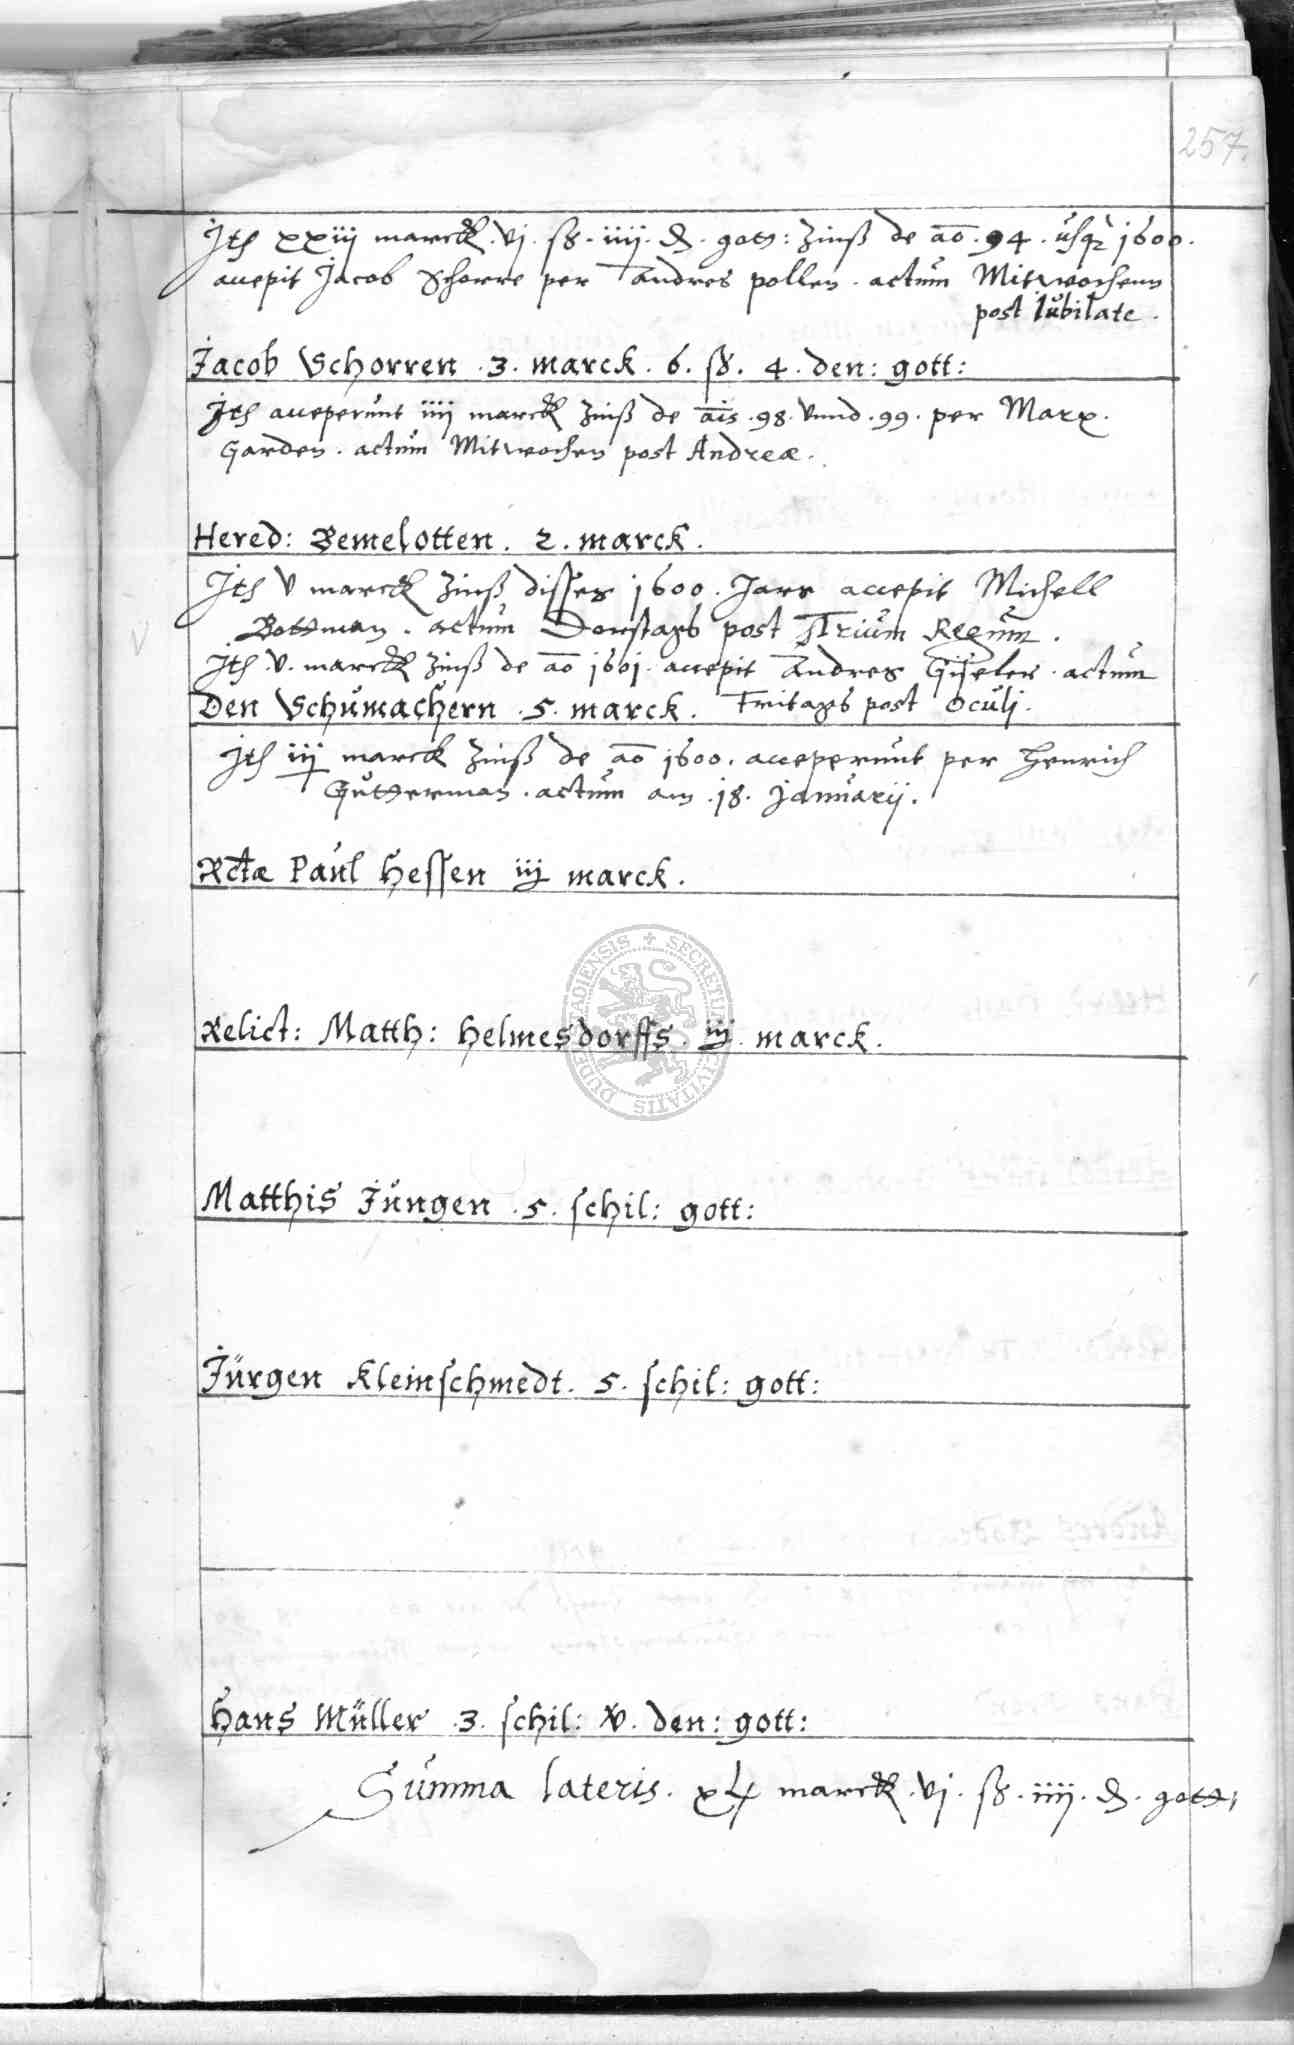 257.
Jtē xxiij marck. vj. ß. iiij. ₰. gott: Zinß de ao. 94. usq 1600.
accepit Jacob Schorre per Andres pollen. actum Mitwochenn
post Iubilate.
Jacob Schorren .3. marck. 6. ß. 4. den: gott:
Jtē acceperunt iiij marck Zinß de ais. 98. vnnd. 99. per Marx.
Garden. actum Mitwochen post Andreæ.
Hered: Bemelotten. 2. marck.
Jtē v marck Zinß disses 1600. Jars accepit Michell
Bottman. actum Donstags post Trium Regum.
Jtē. v. marck Zinß de ao 1601. accepit Andres Giseler. actum
Fritags post Oculj.
Den Schumachern .5. marck.
Jtē iij marck Zinß de ao 1600. acceperunt per Henrich
Gutterman. actum am .18. Januarij.
Rctæ Paul Hessen iij marck.
Relict: Matth: Helmesdorffs. iij. marck.
Matthis Jungen .5. schil: gott:
Jürgen Kleinschmedt. 5. schil: gott:
Hans Müller .3. schil: v. den: gott:
Summa lateris. marck. vj. ß. iiij. ₰. gott;
SECRETUM CIVITATIS DUDERSTADIENSIS